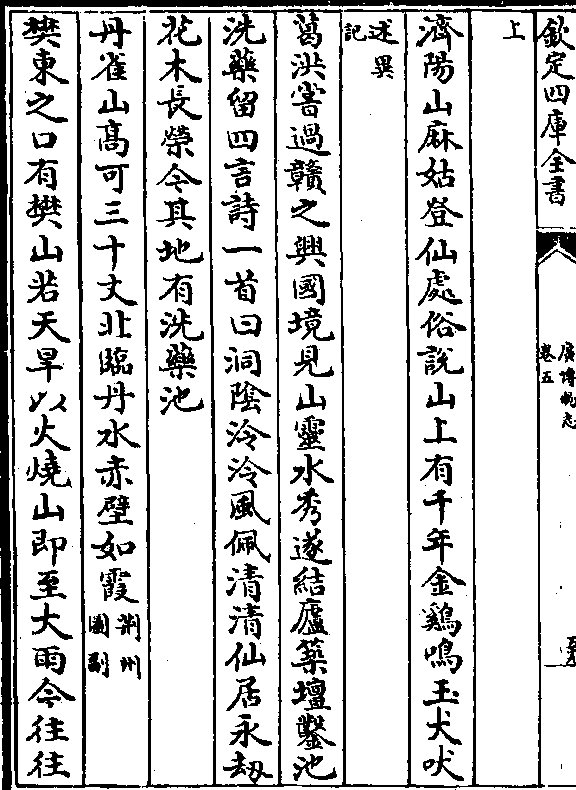 欽定四庫全書
廣博物志
卷五
上
濟陽山麻姑登仙處俗說山上有千年金鷄鳴玉犬吠
述異
記
葛洪嘗過贛之興國境見山靈水秀遂結廬築壇鑿池
洗藥留四言詩一首曰洞陰泠泠風佩清清仙居永刼
花木長榮今其地有洗藥池
丹雀山髙可三十丈北臨丹水赤壁如霞
荆州
圖副
樊東之口有樊山若天旱以火燒山即至大雨今往往